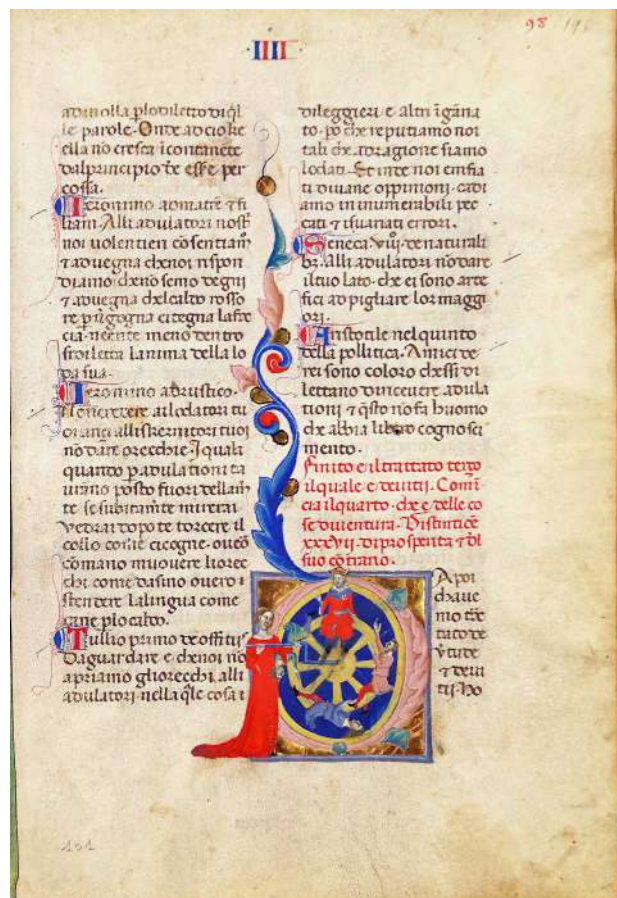 98
IIII
ad molla p lo diletto di q̄l
le parole. Onde ad cio ke
ella nō cresca īcontanēte
dal principio de esse per
cossa.
Ieronimo ad matrē & fi
liam. Alli adulatori nostri
noi volentieri cōsentiam̄
⁊ advegna che noi rispon
diamo che nō semo degni
⁊ advegna chel caldo rosso
re p vgogna ci tegna la fac
cia. neente meno dentro
si diletta lanima della lo
da sua.
Ieronimo ad rustico.
Nencredere ai lodatori tu
oi anci alli skernitori tuoi
nō dare orecchie. I quali
quanto p adulationi ta
uranno posto fuori dellam̄
te se subitam̄te mirerai
vedrai dopo te torcere il
collo come cicogne. oveō
cō mano muovere li orec
chi come dasino overo i
stendere la lingua come
cane p lo caldo.
Tullio primo de offitiis
Da guardare e che noi nō
apriamo gli orecchi alli
adulatori. nella q̄le cosa i
di leggieri e altri īgāna
to. po che reputiamo noi
tali che a ragione siamo
lodati. Et inde noi enfia
ti di vane oppinioni. cadi
amo in inumerabili pec
cati ⁊ isvariati errori.
Seneca. viii. de naturali
bz. Alli adulatori nō dare
il tuo lato. che ei sono arte
fici ad pigliare lor maggi
ori.
Aristotile nel quinto
della pollitica. Amici de
rei sono coloro che ssi di
lettano di ricevere adula
tioni ⁊ q̄sto nō fa huomo
che abbia libero cognosci
mento.
Finito e il trattato terço
il quale e de vitii. Comī
cia il quarto. che e delle co
se di ventura. Distinctiōe
xxxvii. di prosperita ⁊ del
suo cōtrario.
A poi
chave
mo trac
tato de
vtude
⁊ de vi
tii. Ho
101